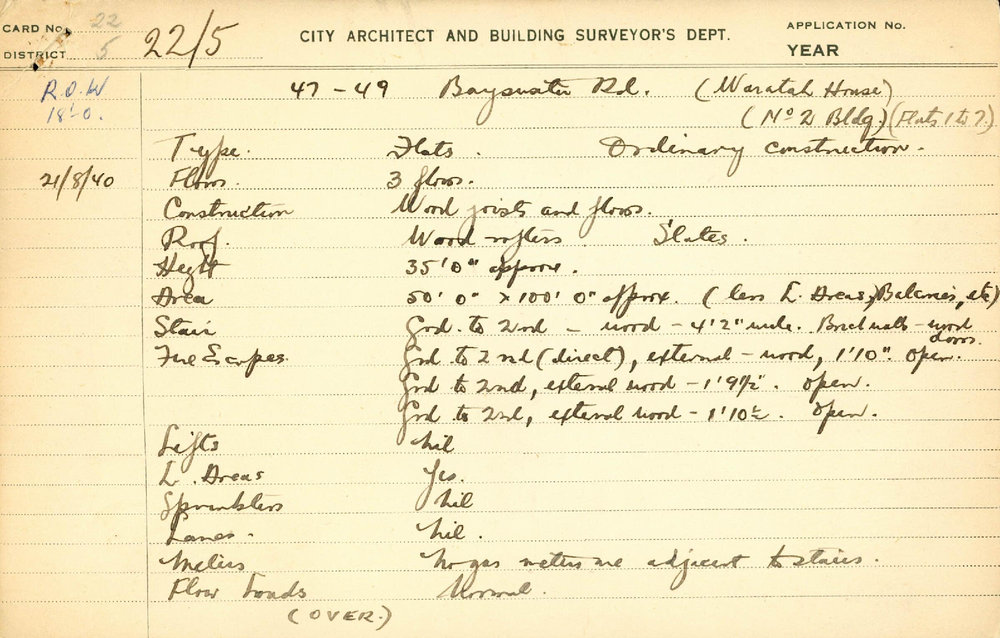 CARD No. 22
DISTRICT 5
22/5
CITY ARCHITECT AND BUILDING SURVEYOR'S DEPT.
APPLICATION No.
YEAR
R.O.W
18'-0.
47 - 49 Bayswater Rd. (Waratah House)
(No 2 Bldg.) (Flats 1 to 7.)
Type. Flats. Ordinary construction.
21/8/40 Floors. 3 floors.
Construction Wood joists and floors.
Roof. Wood rafters. Slates.
Height 35'0" approx.
Area 50' 0" x 100' 0" approx. (less L. Areas, Balconies, etc)
Stair Grd. to 2nd - wood - 4'2" wide. Brick walls - wood doors.
Fire Escapes. Grd to 2nd (direct), external - wood, 1'10". Open.
Grd to 2nd, external wood - 1'9½". Open.
Grd to 2nd, external wood - 1'10½. Open.
Lifts Nil
L. Areas Yes.
Sprinklers Nil
Lanes. Nil.
Meters No gas meters are adjacent to stairs.
Floor Loads Normal.
(OVER.)